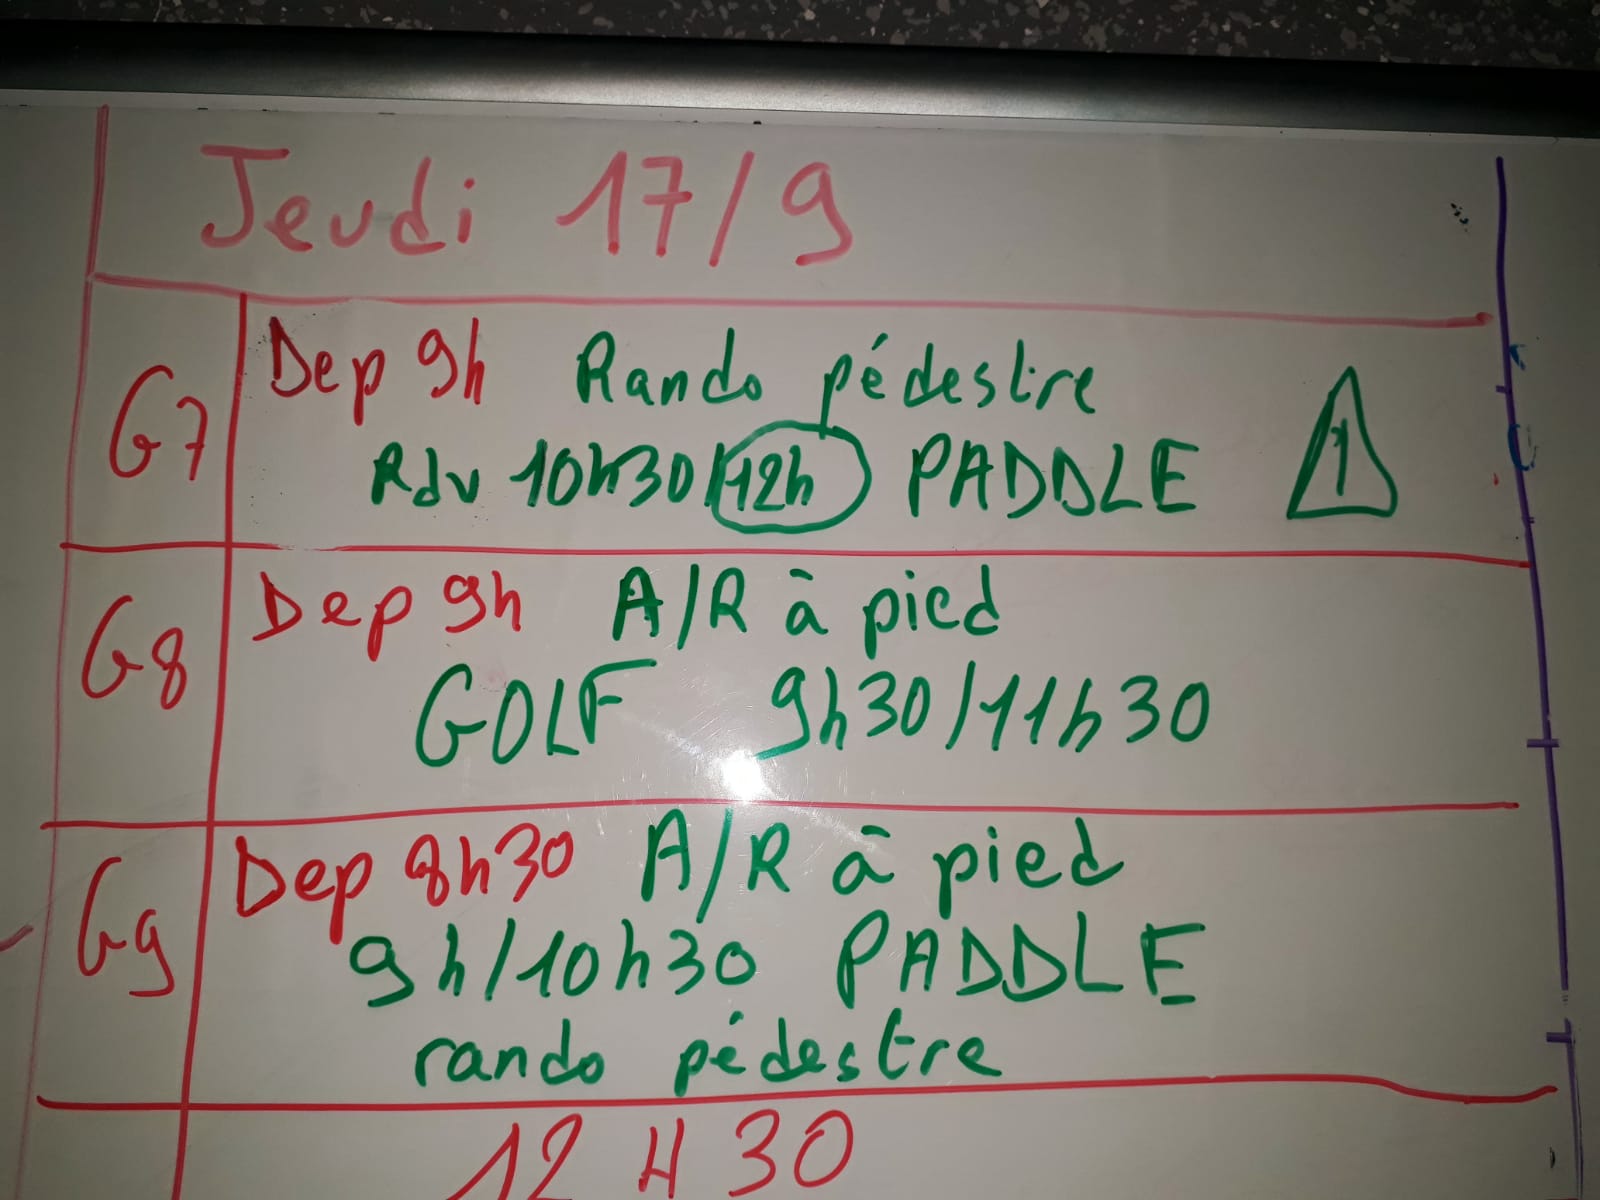 Jeudi 17/9
G7
Dep 9h Rando pédestre
Rdv 10h30/12h PADDLE !
G8
Dep 9h A/R à pied
GOLF 9h30/11h30
G9
Dep 8h30 A/R à pied
9h/10h30 PADDLE
rando pédestre
12H30